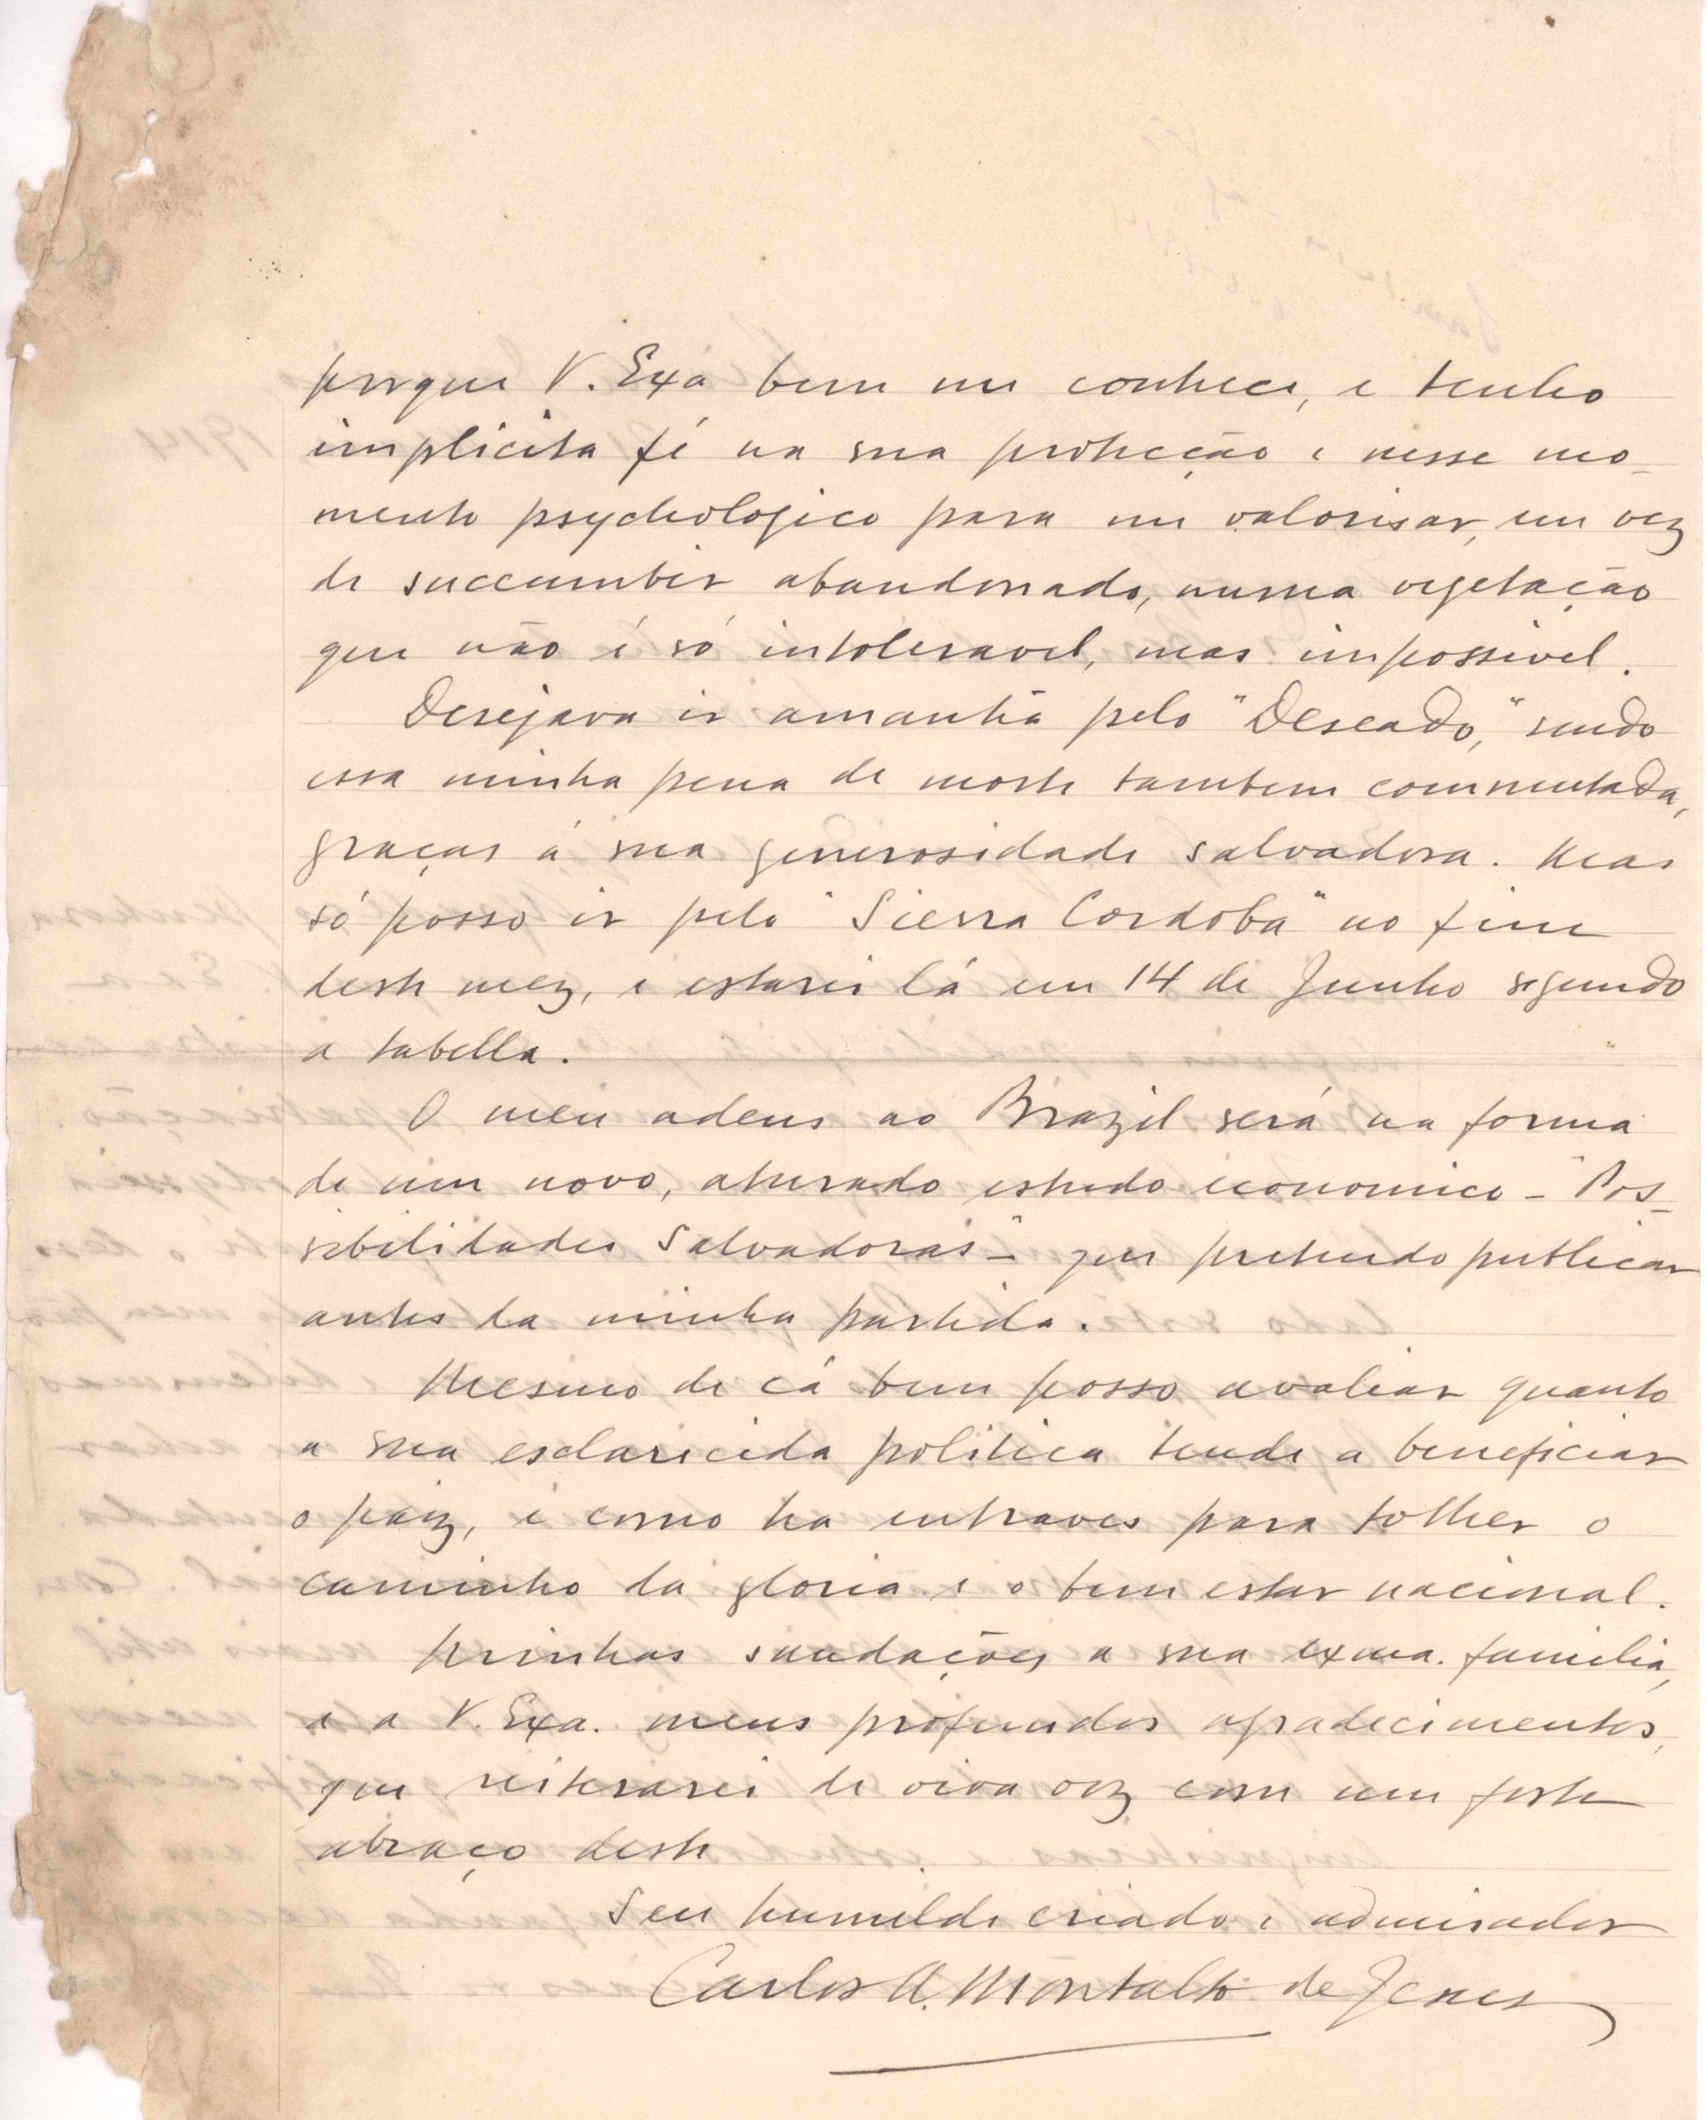 porque V. Exa bem me conhece, e tenho
implicita fé na sua protecção e nesse mo-
mento psychologico para me valorisar, em vez
de succumbir abandonado, numa vegetação
que não é só intoleravel, mas impossivel.
Desejava ir amanhã pelo "Deseado," sendo
essa minha pena de morte tambem commutada,
graças á sua generosidade salvadora. Mas
só posso ir pelo "Sierra Cordoba" no fim
deste mez, e estarei lá em 14 de Junho segundo
a tabella.
O meu adeus ao Brazil será na forma
de um novo, aturado estudo economico - "Pos-
sibilidades Salvadoras" - que pretendo publicar
antes da minha partida.
Mesmo de cá bem posso avaliar quanto
a sua esclarecida politica tende a beneficiar
o paiz, e como ha entraves para tolher o
caminho da gloria e o bem estar nacional.
Minhas saudações a sua exma. familia,
e a V. Exa. meus profundos agradecimentos,
que reiterarei de viva voz com um forte
abraço deste
Seu humilde criado e admirador
Carlos A. Montalto de Jesus